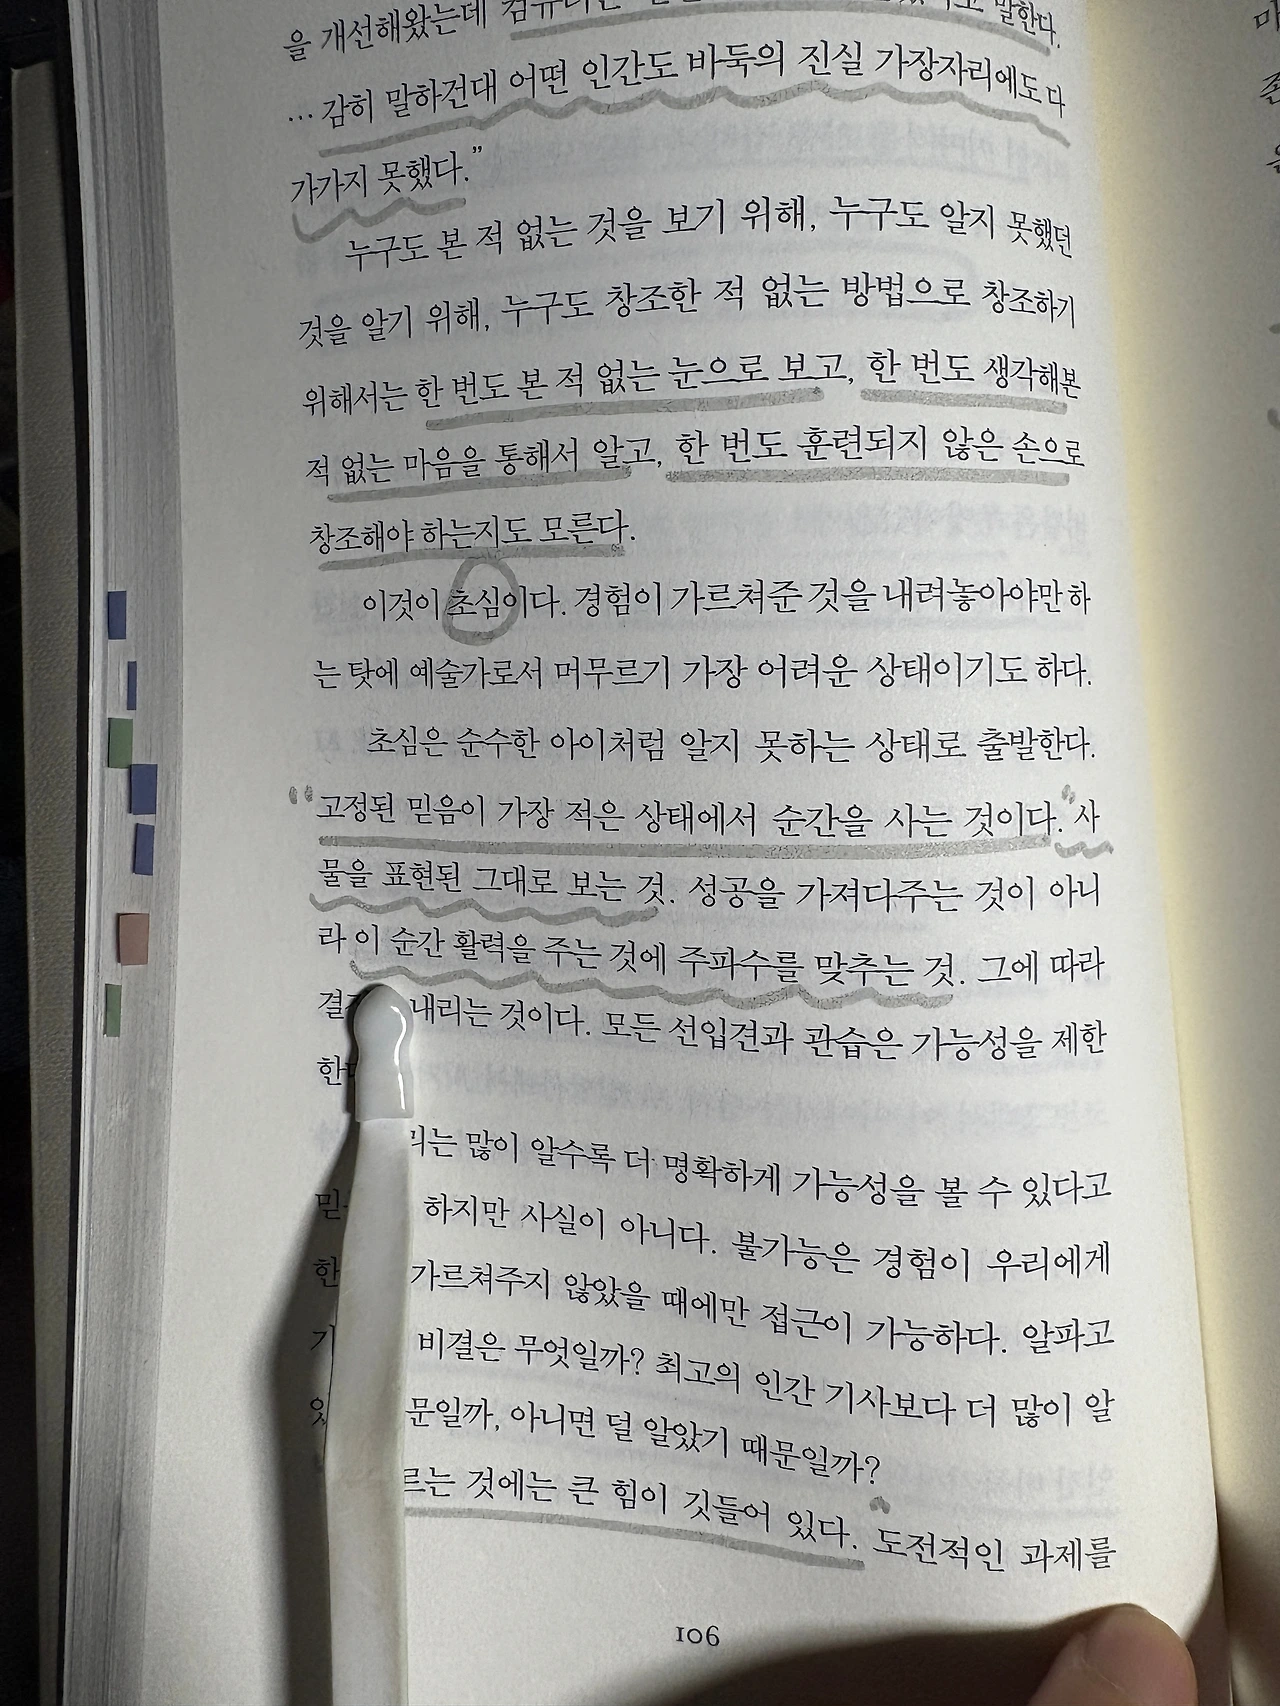 을 개선해왔는데 말한다.
… 감히 말하건대 어떤 인간도 바둑의 진실 가장자리에도 다
가가지 못했다.”
누구도 본 적 없는 것을 보기 위해, 누구도 알지 못했던
것을 알기 위해, 누구도 창조한 적 없는 방법으로 창조하기
위해서는 한 번도 본 적 없는 눈으로 보고, 한 번도 생각해본
적 없는 마음을 통해서 알고, 한 번도 훈련되지 않은 손으로
창조해야 하는지도 모른다.
이것이 초심이다. 경험이 가르쳐준 것을 내려놓아야만 하
는 탓에 예술가로서 머무르기 가장 어려운 상태이기도 하다.
초심은 순수한 아이처럼 알지 못하는 상태로 출발한다.
고정된 믿음이 가장 적은 상태에서 순간을 사는 것이다. 사
물을 표현된 그대로 보는 것. 성공을 가져다주는 것이 아니
라 이 순간 활력을 주는 것에 주파수를 맞추는 것. 그에 따라
내리는 것이다. 모든 선입견과 관습은 가능성을 제한
많이 알수록 더 명확하게 가능성을 볼 수 있다고
하지만 사실이 아니다. 불가능은 경험이 우리에게
가르쳐주지 않았을 때에만 접근이 가능하다. 알파고
비결은 무엇일까? 최고의 인간 기사보다 더 많이 알
아니면 덜 알았기 때문일까?
것에는 큰 힘이 깃들어 있다. 도전적인 과제를
106